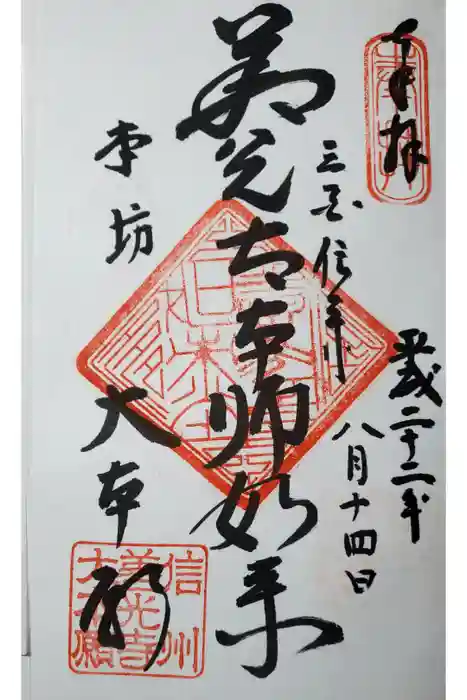 奉拝
平成二十二年
八月十四日
三国伝来
善光寺本師如来
本坊
大本願
信州
善光寺
大本願